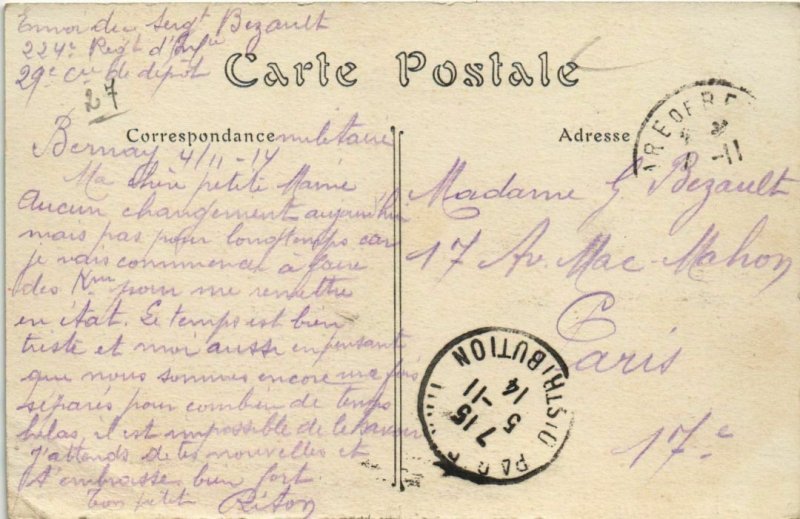 Envoi du Sergt Bezault
224e Regt d'Infie
29e Cie de dépôt
27
Carte Postale
Correspondance militaire
Adresse
Bernay 4/11-14
Ma chère petite Mamie
Aucun changement aujourd'hui
mais pas pour longtemps car
je vais commencer à faire
des Km pour me remettre
en état. Le temps est bien
triste et moi aussi en pensant
que nous sommes encore une fois
séparés pour combien de temps
hélas, il est impossible de le savoir
J'attends de tes nouvelles et
t'embrasse bien fort.
Ton petit Riton
Madame G Bezault
17 Av. Mac-Mahon
Paris
17e
-11
PARIS
DISTRIBUTION
7 15
5 -11
14